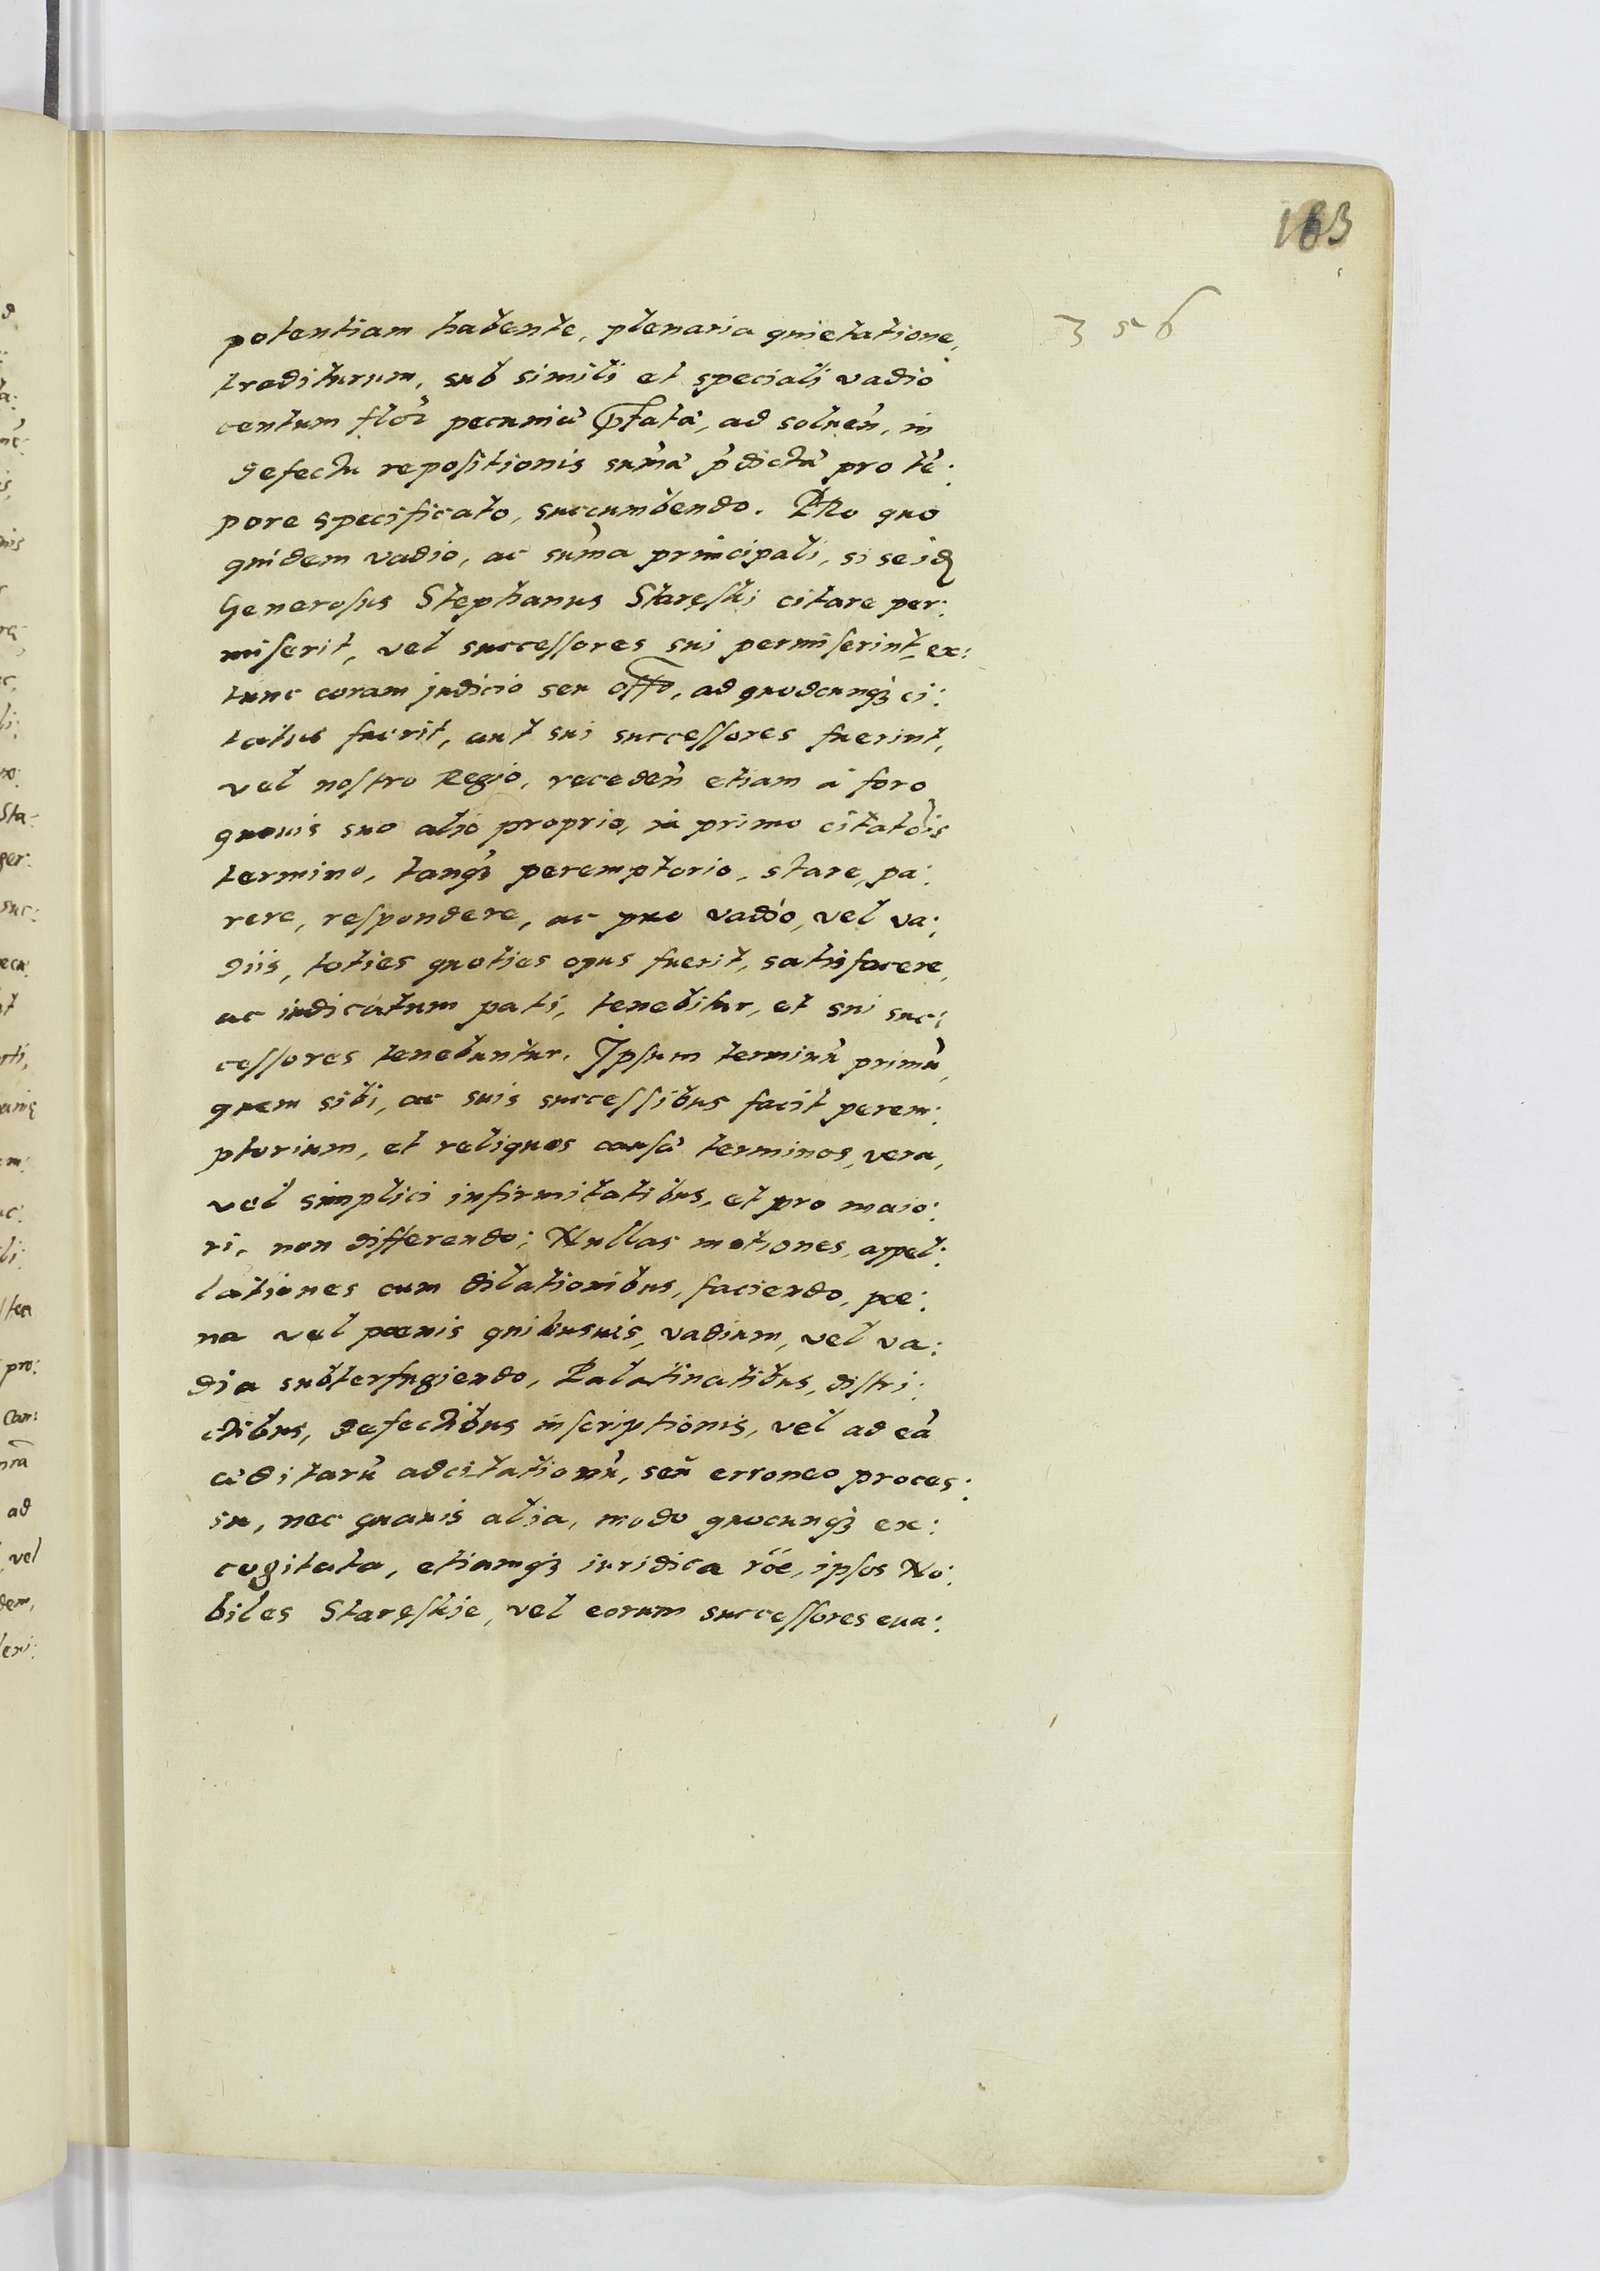 163
356
potentiam habente, plenaria quietatione,
traditurum, sub simili et speciali vadio
centum flor̃ pecuniæ p̃tatæ, ad soluen̄, in
defectu repositionis sum̄æ p̄dictæ pro tē:
pore specificato, succumbendo. PRo quo
quidem vadio, ac sum̄a principali, si se idꝫ
Generosus Stephanus Staręski citare per:
miserit, vel successores sui permiserint, ex:
tunc coram judicio seu offo, ad quodcunqꝫ ci:
tatus fuerit, aut sui successores fuerint,
vel nostro Regio, receden̄ etiam à foro
quouis suo alio proprio, in primo citatõis
termino, tanqꝫ peremptorio, stare, pa:
rere, respondere, ac pro vadio, vel va:
diis, toties quoties opus fuerit, satisfacere,
ac iudicatum pati, tenebitur, et sui suc:
cessores tenebuntur. Ipsum terminū primū,
quem sibi, ac suis successibus facit perem:
ptorium, et reliquos causæ terminos, vera,
vel simplici infirmitatibus, et pro maio:
ri, non differendo; Nullas motiones, appel:
lationes cum dilationibus, faciendo, poe:
na vel poenis quibusuis, vadium, vel va:
dia subterfugiendo, Palatinatibus, distri:
ctibus, defectibus inscriptionis, vel ad eā
æditarū adcitationū, seū erroneo proces:
su, nec quauis alia, modo quocunqꝫ ex:
cogitata, etiamqꝫ iuridica rõe, ipsos No:
biles Staręskie, vel eorum successores eua: